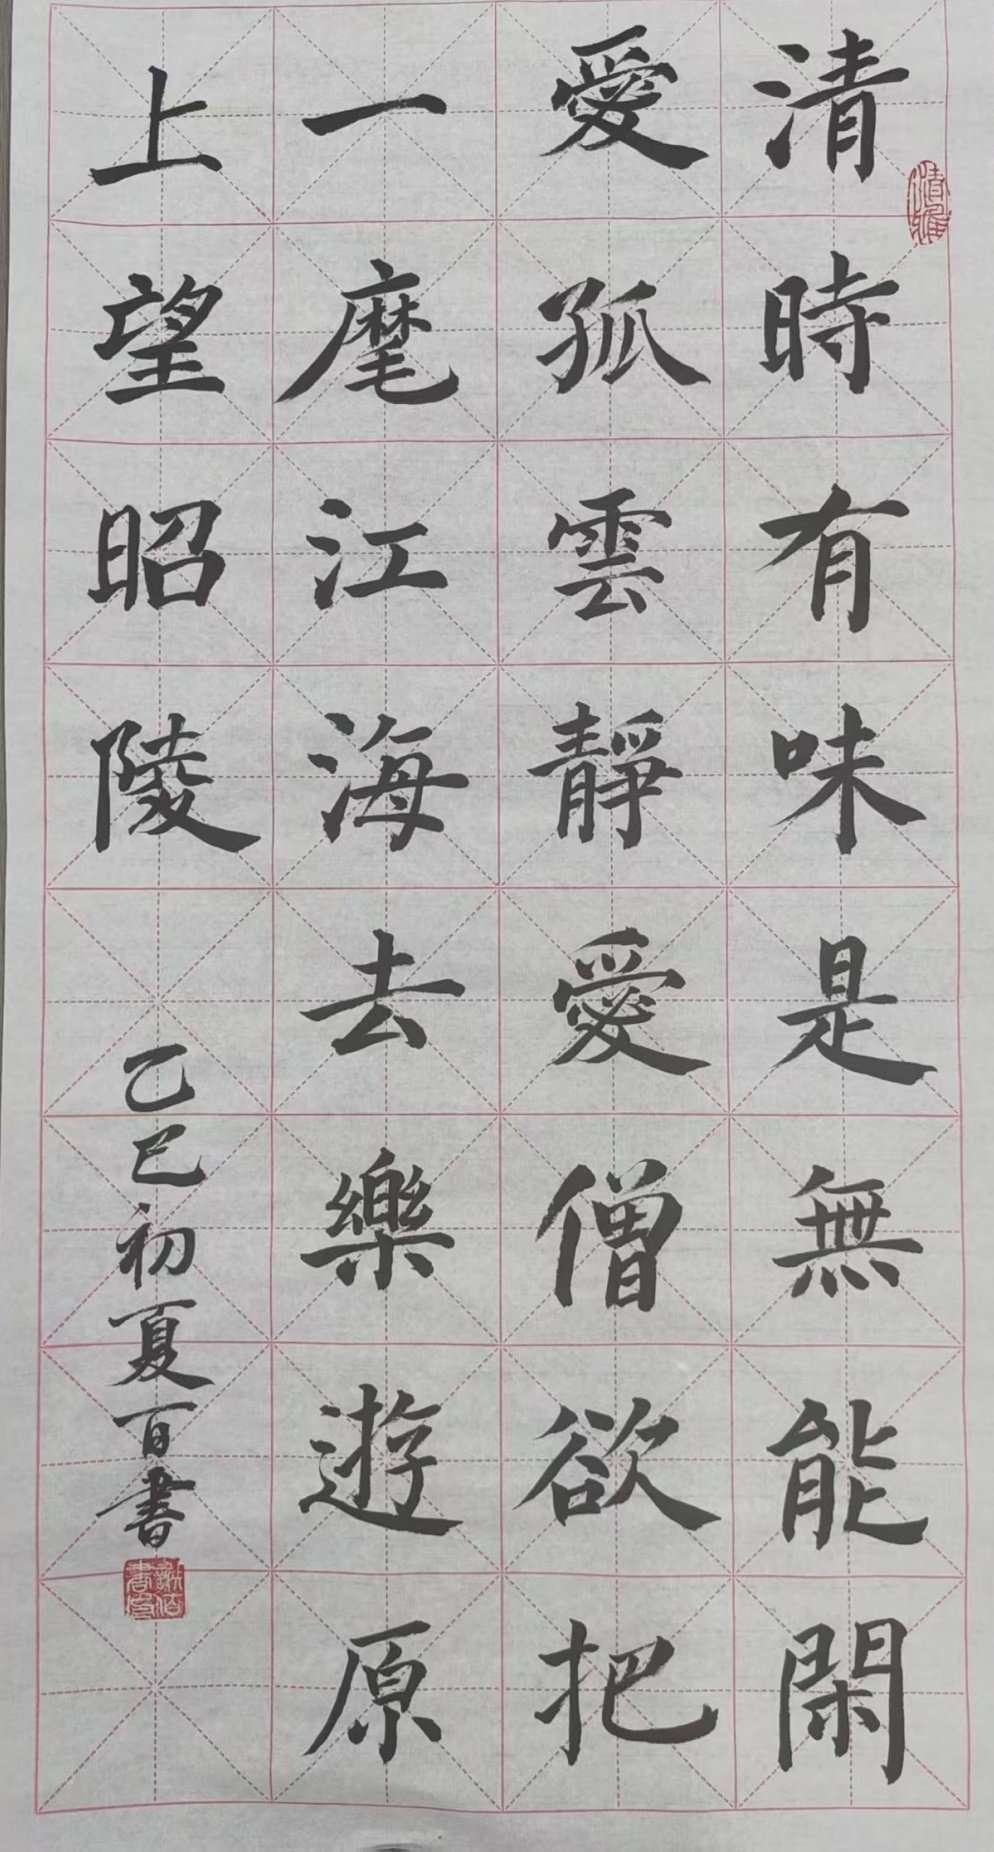 清時有味是無能閑
愛孤雲靜愛僧欲把
一麾江海去樂遊原
上望昭陵
乙巳初夏百書